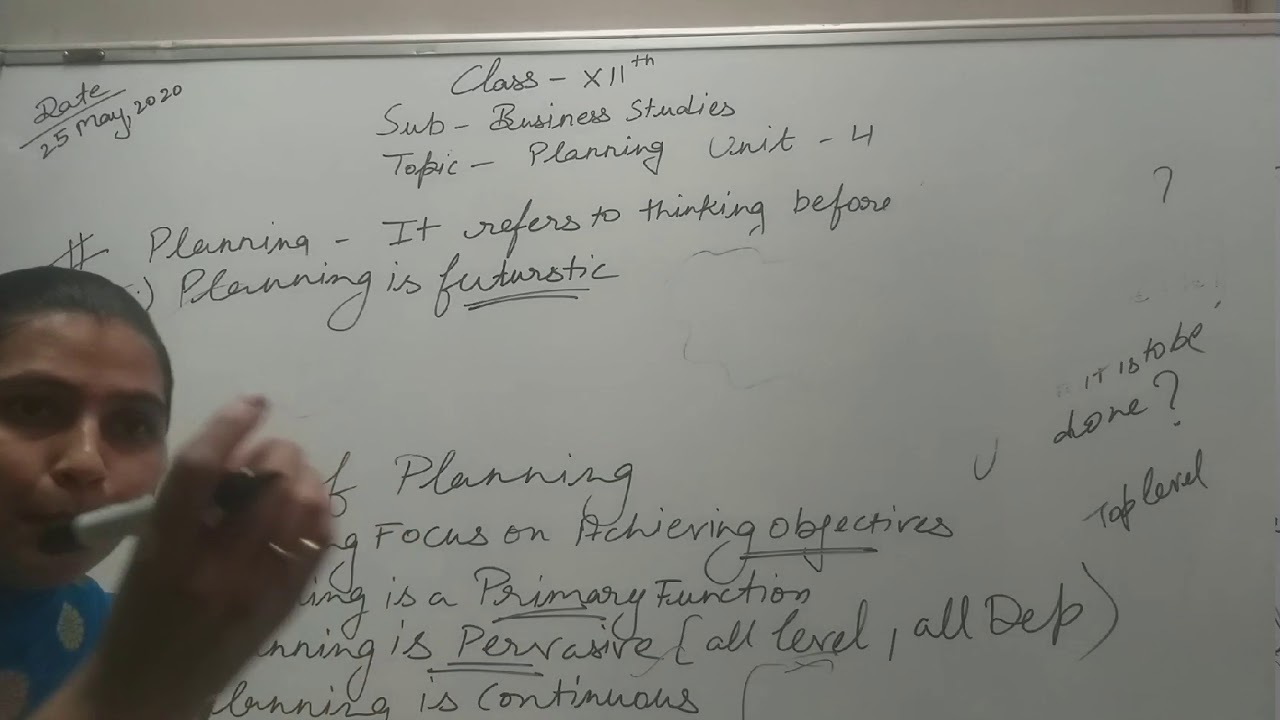 Date
25 May, 2020
Class - XIIth
Sub - Business Studies
Topic - Planning Unit - 4
?
# Planning - It refers to thinking before
.) Planning is futurstic
it is to be
done ?
f Planning
Top level
ng Focus on Achieving objectives
ing is a Primary Function
nning is Pervasive [all level, all Dep)
lanning is continuous